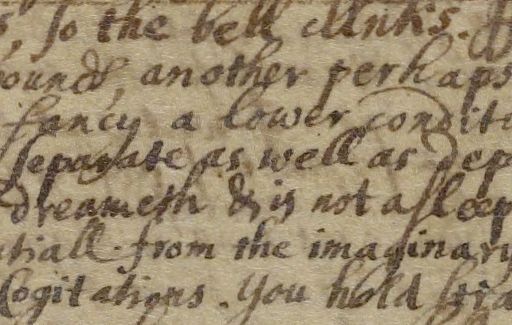 s, so the bell clinks.
ounds, another perhaps
fancy a lower condit
separate as well as dep
dreameth & is not asleep
tiall from the imaginary
Cogitations. You hold stra